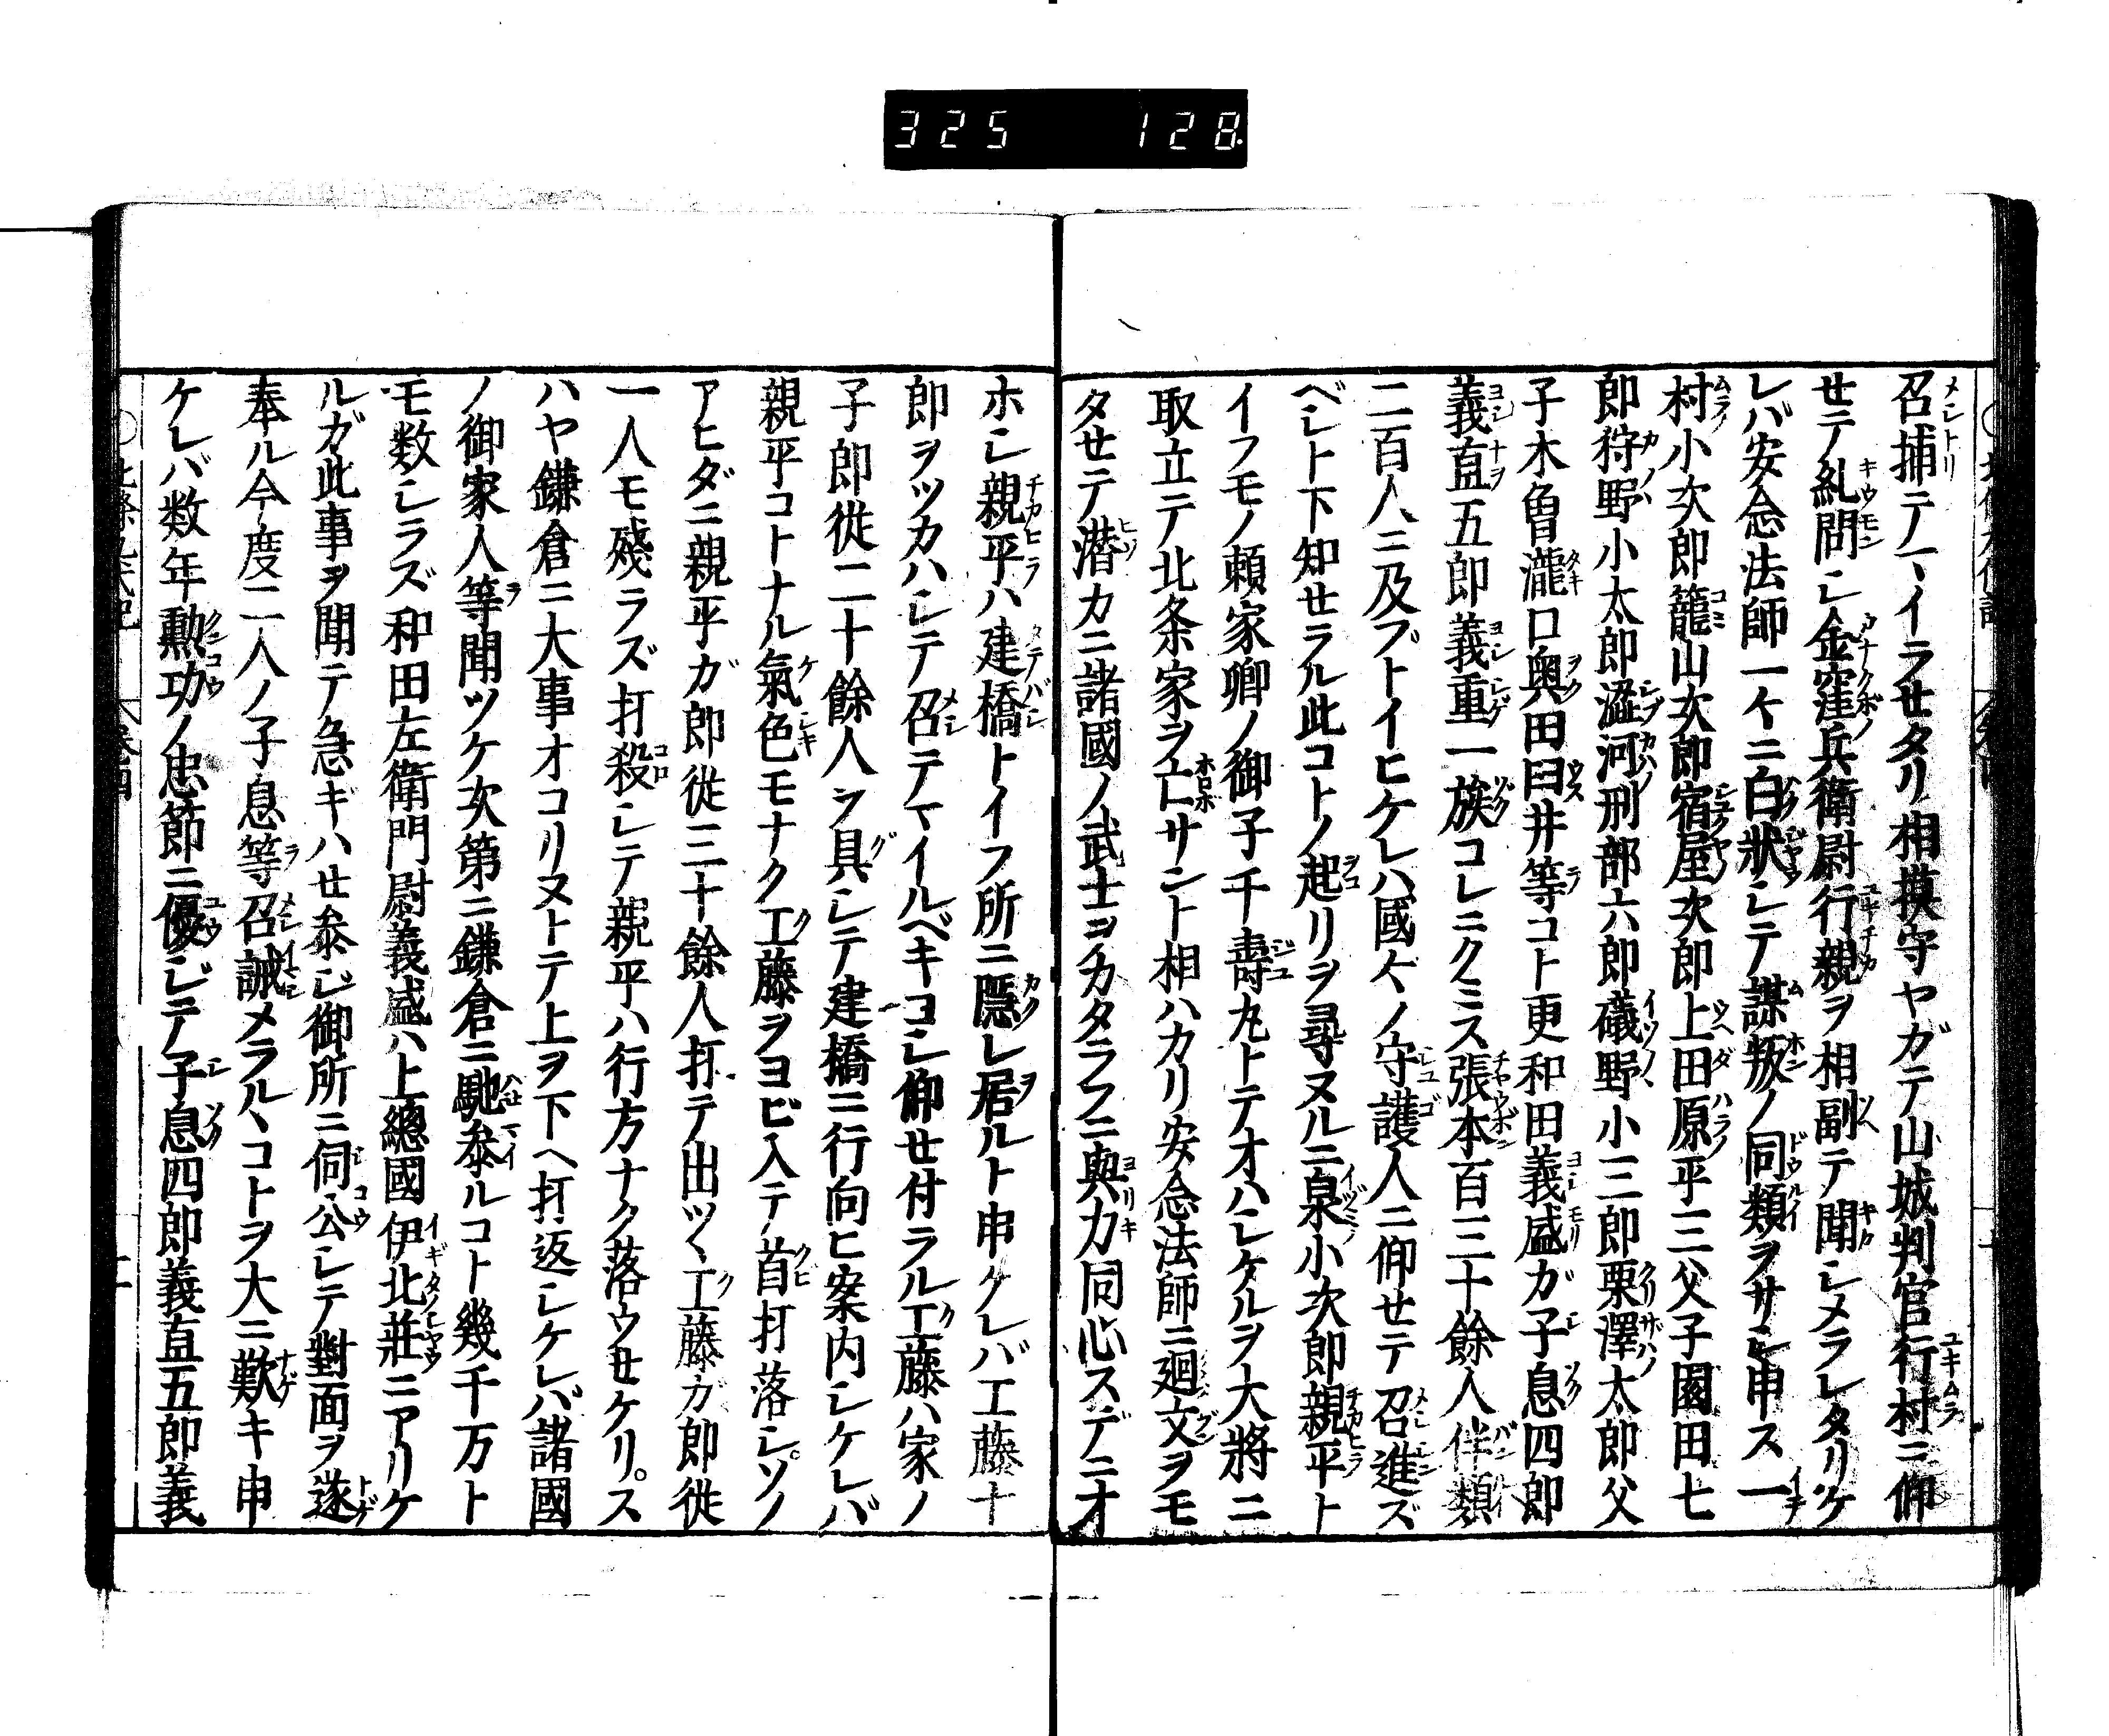 325 128
召捕テマイラセタリ相摸守ヤガテ山城判官行村ニ仰
セテ糺問シ金窪兵衛尉行親ヲ相副テ聞シメラレタリケ
レバ安念法師一々ニ白狀シテ謀叛ノ同類ヲサシ申ス一
村小次郎籠山次郎宿屋次郎上田原平三父子園田七
郎狩野小太郎澁河刑部六郎礒野小三郎栗澤太郎父
子木曾瀧口奥田臼井等コト更和田義盛ガ子息四郎
義直五郎義重一族コレニクミス張本百三十餘人伴類
二百人ニ及ブトイヒケレハ國々ノ守護人ニ仰セテ召進ズ
ベシト下知セラル此コトノ起リヲ尋ヌルニ泉小次郎親平ト
イフモノ頼家卿ノ御子千壽丸トテオハシケルヲ大將ニ
取立テ北条家ヲ亡サント相ハカリ安念法師ニ廻文ヲモ
タセテ潜カニ諸國ノ武士ヲカタラフニ與力同心スデニオ
ホシ親平ハ建橋トイフ所ニ隱レ居ルト申ケレバ工藤十
郎ヲツカハシテ召テマイルベキコシ仰セ付ラル工藤ハ家ノ
子郎従二十餘人ヲ具シテ建橋ニ行向ヒ案内シケレバ
親平コトナル氣色モナク工藤ヲヨビ入テ首打落シ。ソノ
アヒダニ親平ガ郎従三十餘人打テ出ツヽ工藤ガ郎従
一人モ殘ラズ打殺シテ親平ハ行方ナク落ウセケリ。ス
ハヤ鎌倉ニ大事オコリヌトテ上ヲ下ヘ打返シケレバ諸國
ノ御家人等聞ツケ次第ニ鎌倉ニ馳叅ルコト幾千万ト
モ数シラズ和田左衛門尉義盛ハ上總國伊北莊ニアリケ
ルガ此事ヲ聞テ急ギハセ叅ジ御所ニ伺公シテ對面ヲ遂
奉ル今度二人ノ子息等召誡メラルヽコトヲ大ニ歎キ申
ケレバ数年勲功ノ忠節ニ優ジテ子息四郎義直五郎義